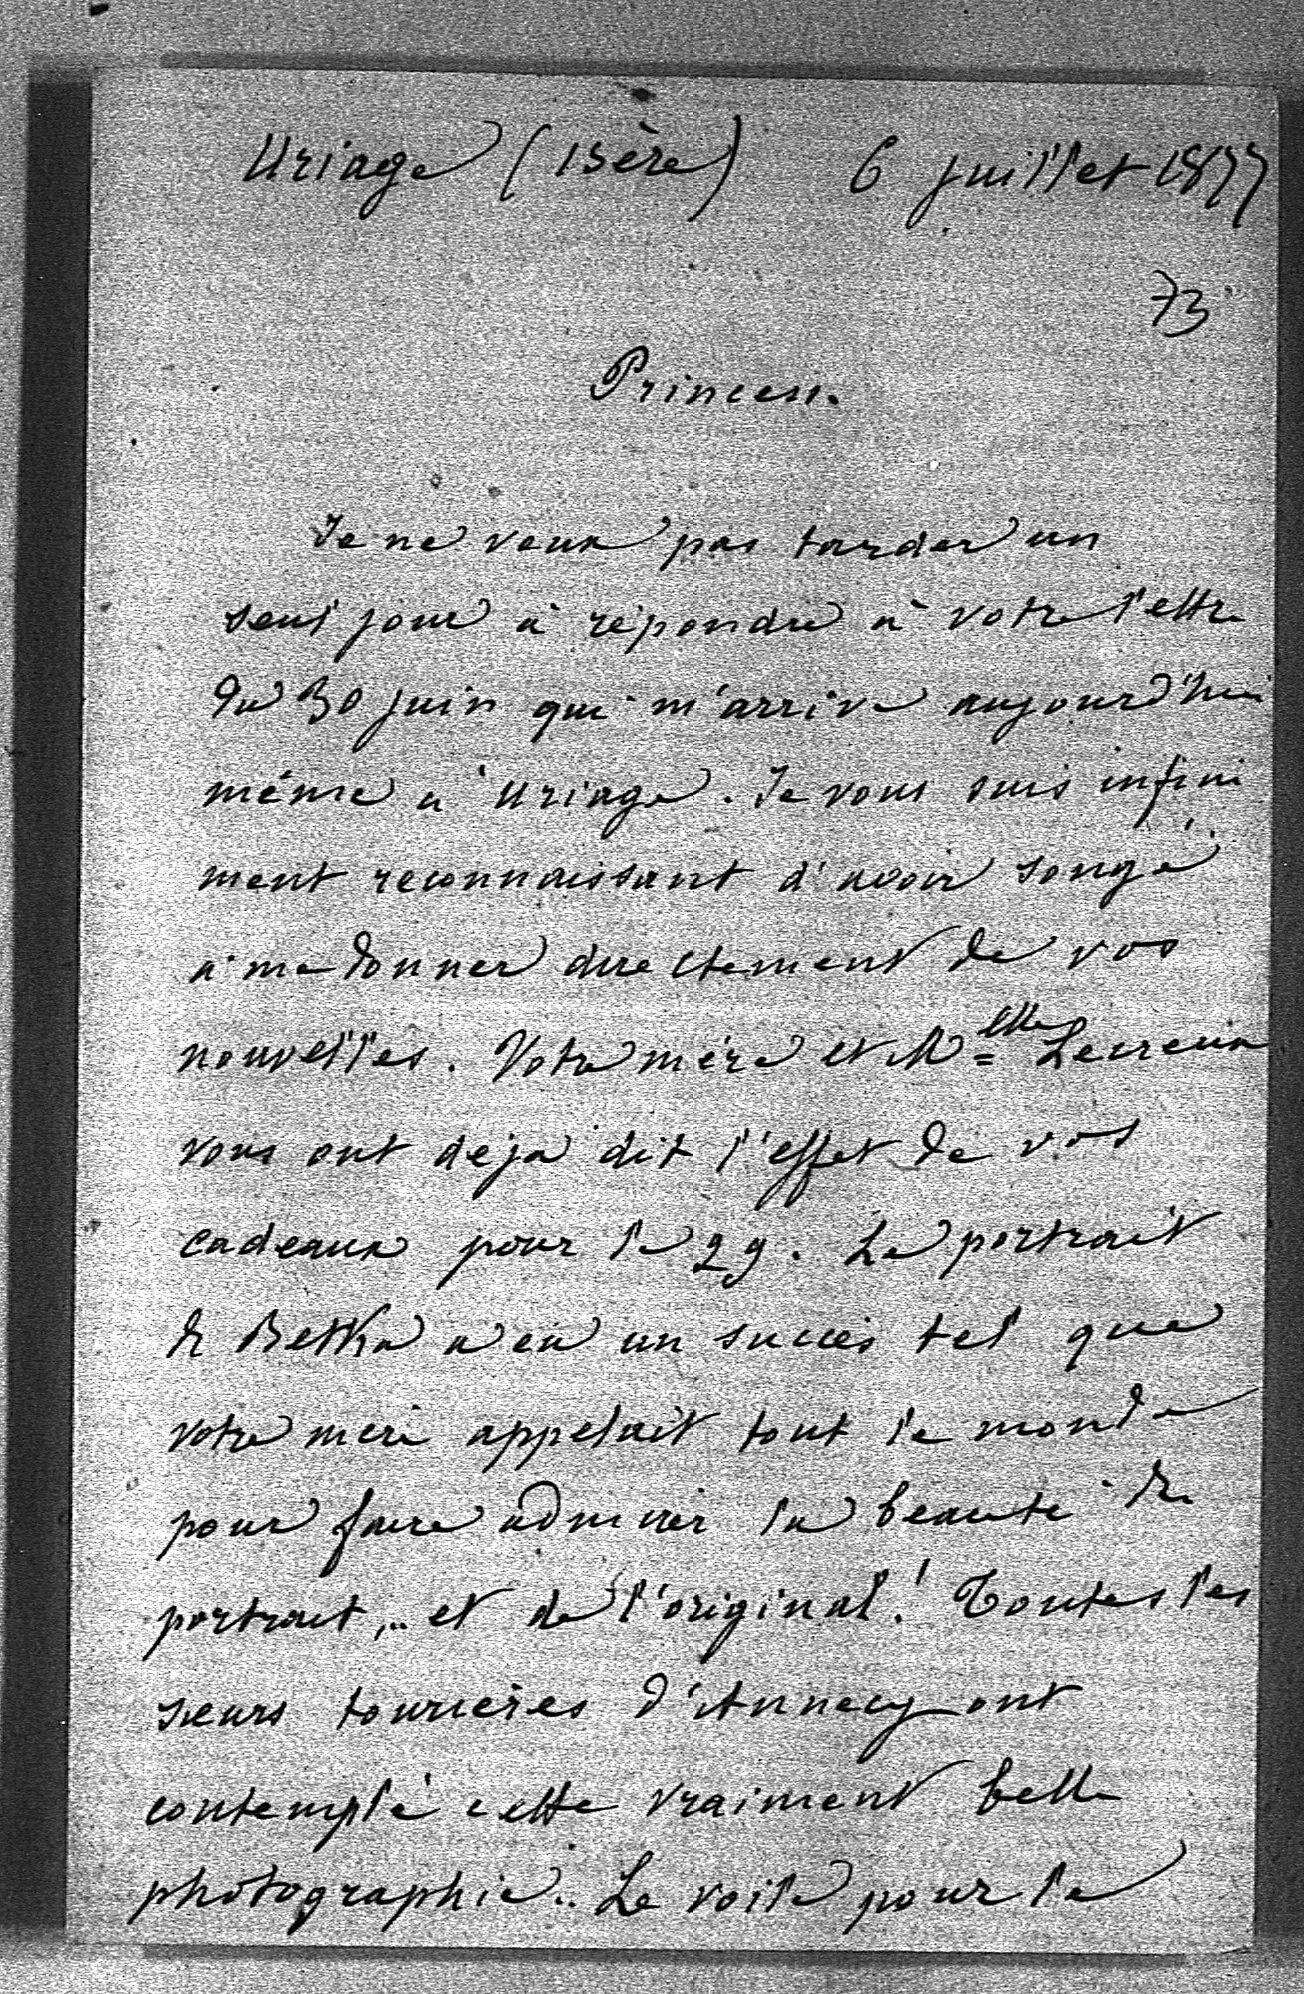 Uriage (Isère) 6 juillet 1877
73
Princesse.
Je ne veux pas tarder un
seul jour à répondre à votre lettre
du 30 juin qui m'arrive aujourd'hui
même à Uriage. Je vous suis infini
ment reconnaissant d'avoir songé
à me donner directement de vos
nouvelles. Votre mère et Melle
vous ont déjà dit l'effet de vos
cadeaux pour le 29. Le portrait
de Betka a eu un succès tel que
votre mère appelait tout le monde
pour faire admirer la beauté du
portrait,.. et de l'original! Toutes les
sœurs tourières d'Annecy ont
contemplé cette vraiment belle
photographie.. Le voile pour le